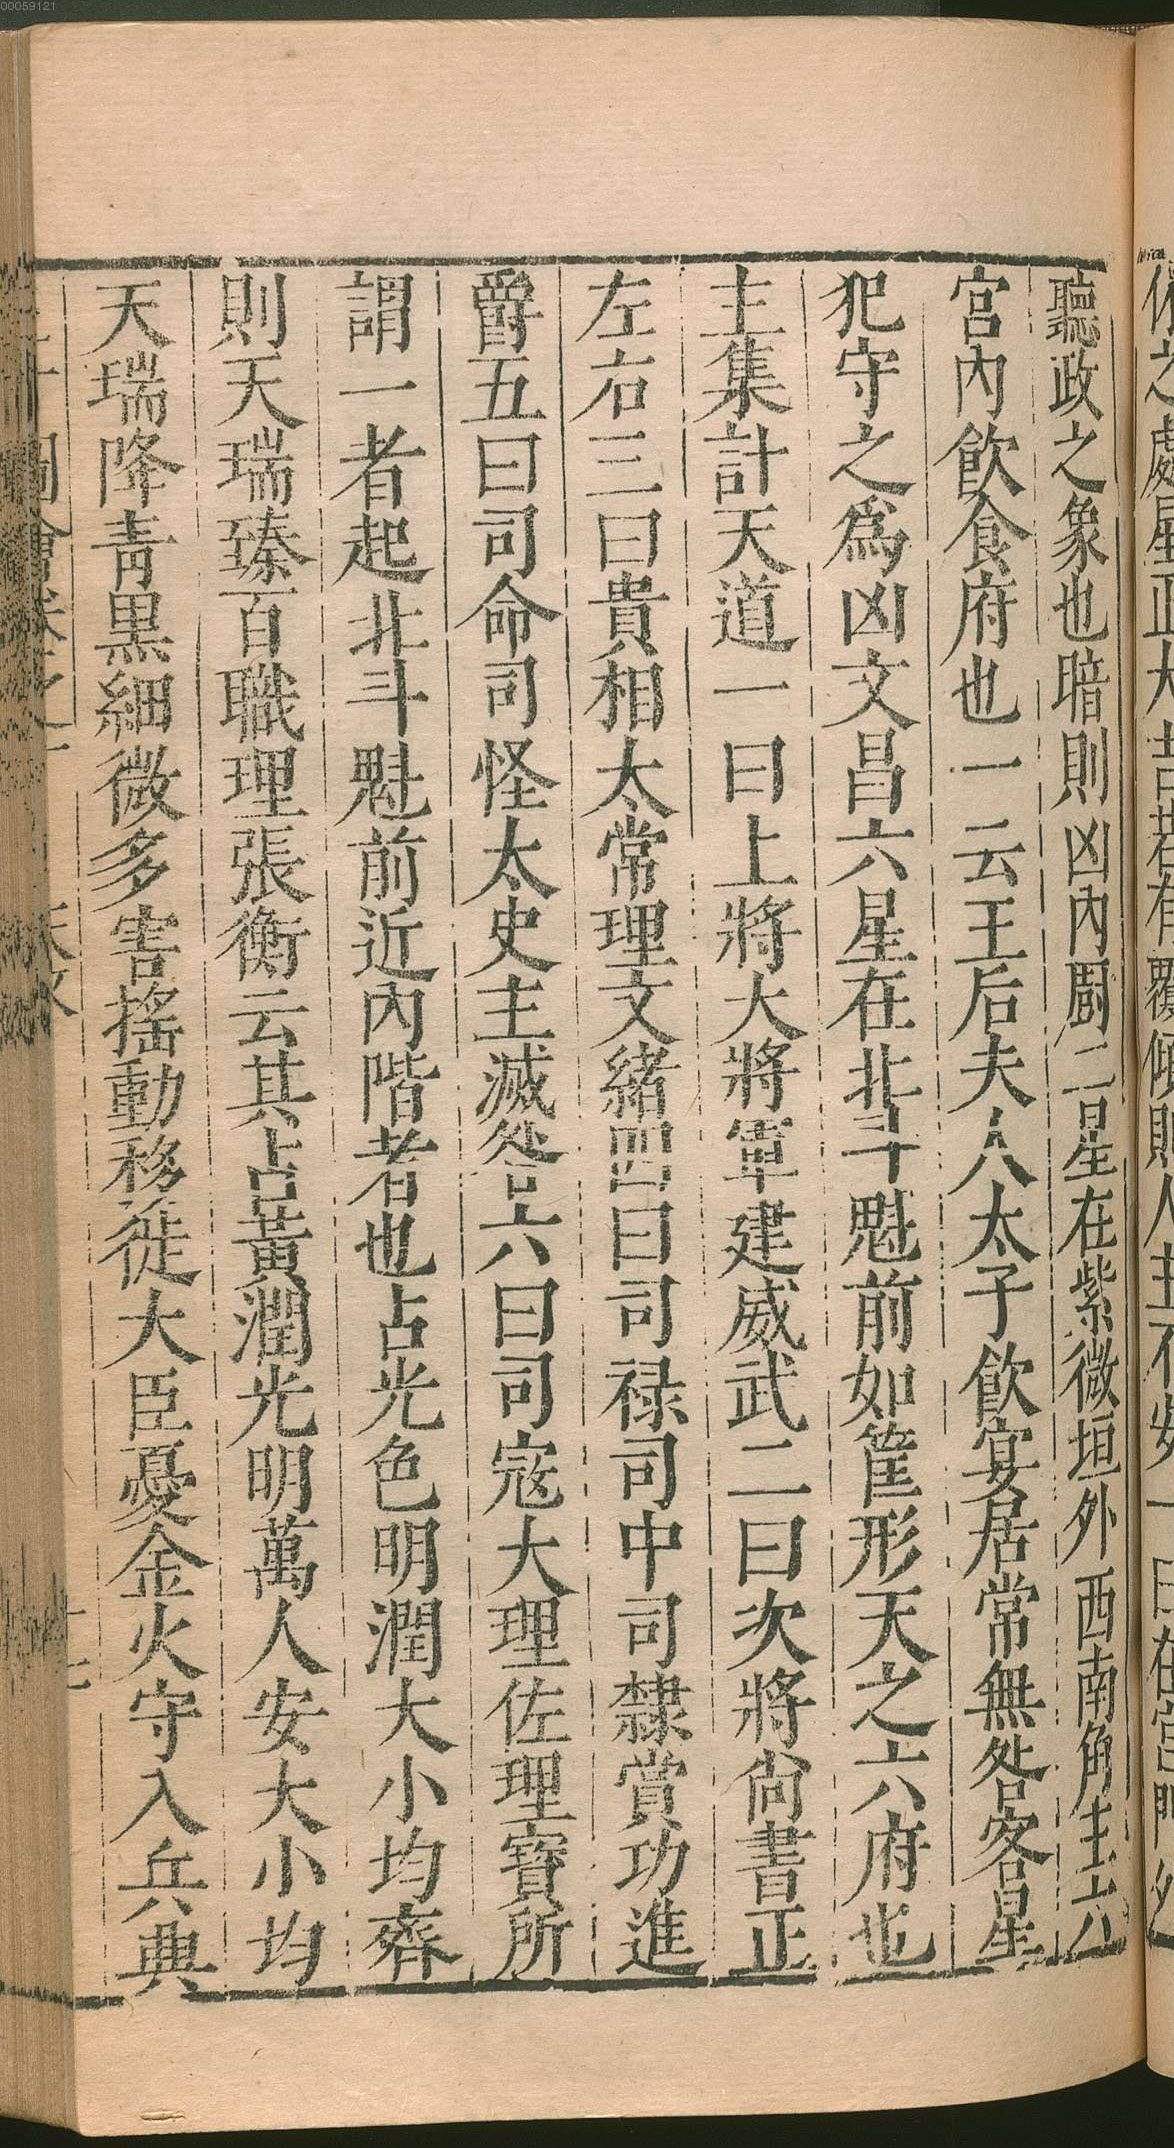 聽政之象也暗則凶內厨二星在紫微垣外西南角主六
宮內飲食府也一云王后夫人太子飲宴居常無咎客星
犯守之為凶文昌六星在北斗魁前如筐形天之六府也
主集計天道一曰上將大將軍建威武二曰次將尚書正
左右三曰貴相太常理文緒四曰司禄司中司隸賞功進
爵五曰司命司怪太史主滅咎六曰司寇大理佐理寶所
謂一者起北斗魁前近內階者也占光色明潤大小均齊
則天瑞臻百職理張衡云其占黃潤光明萬人安大小均
天瑞降靑黑細微多害搖動移徙大臣憂金火守入兵典
00059121